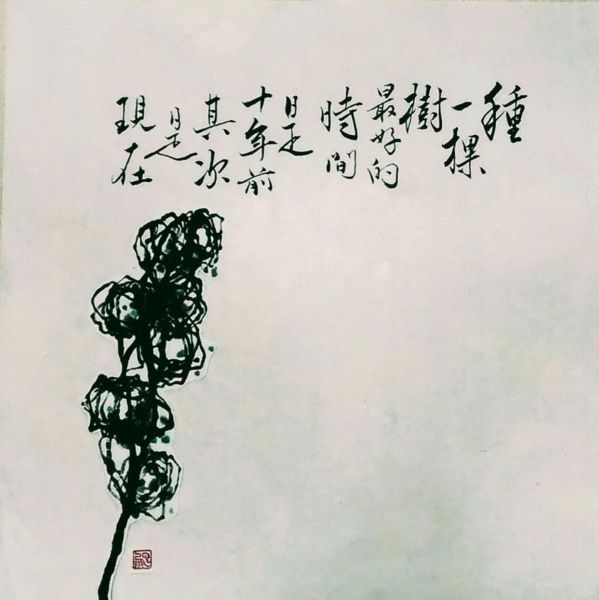 種
一棵
樹
最好的
時間
是
十年前
其次
是
現在